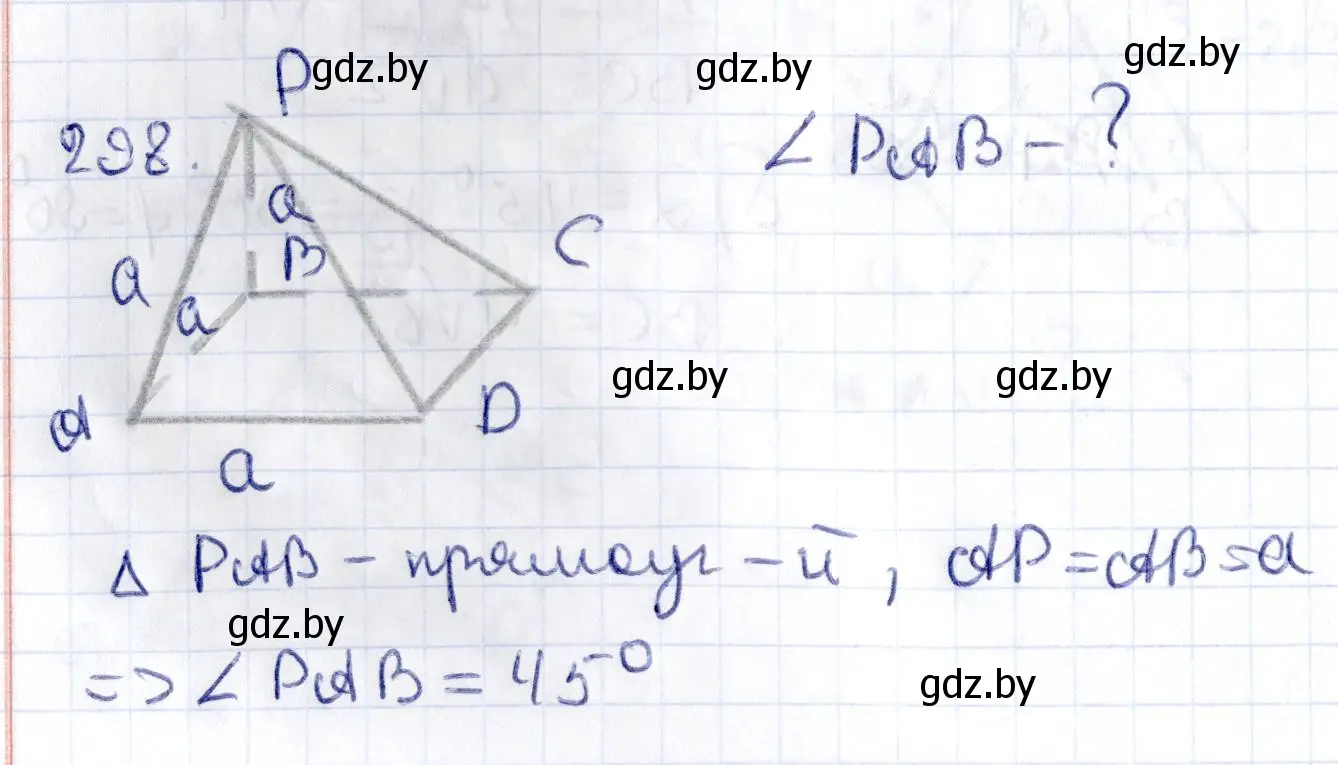 P gdz.by gdz.by gdz.by
298. ∠ PAB - ?
a
B C
a a
gdz.by gdz.by
A D
a
△ PAB - прямоуг - й, AP = AB = a
gdz.by
=> ∠ PAB = 45° gdz.by